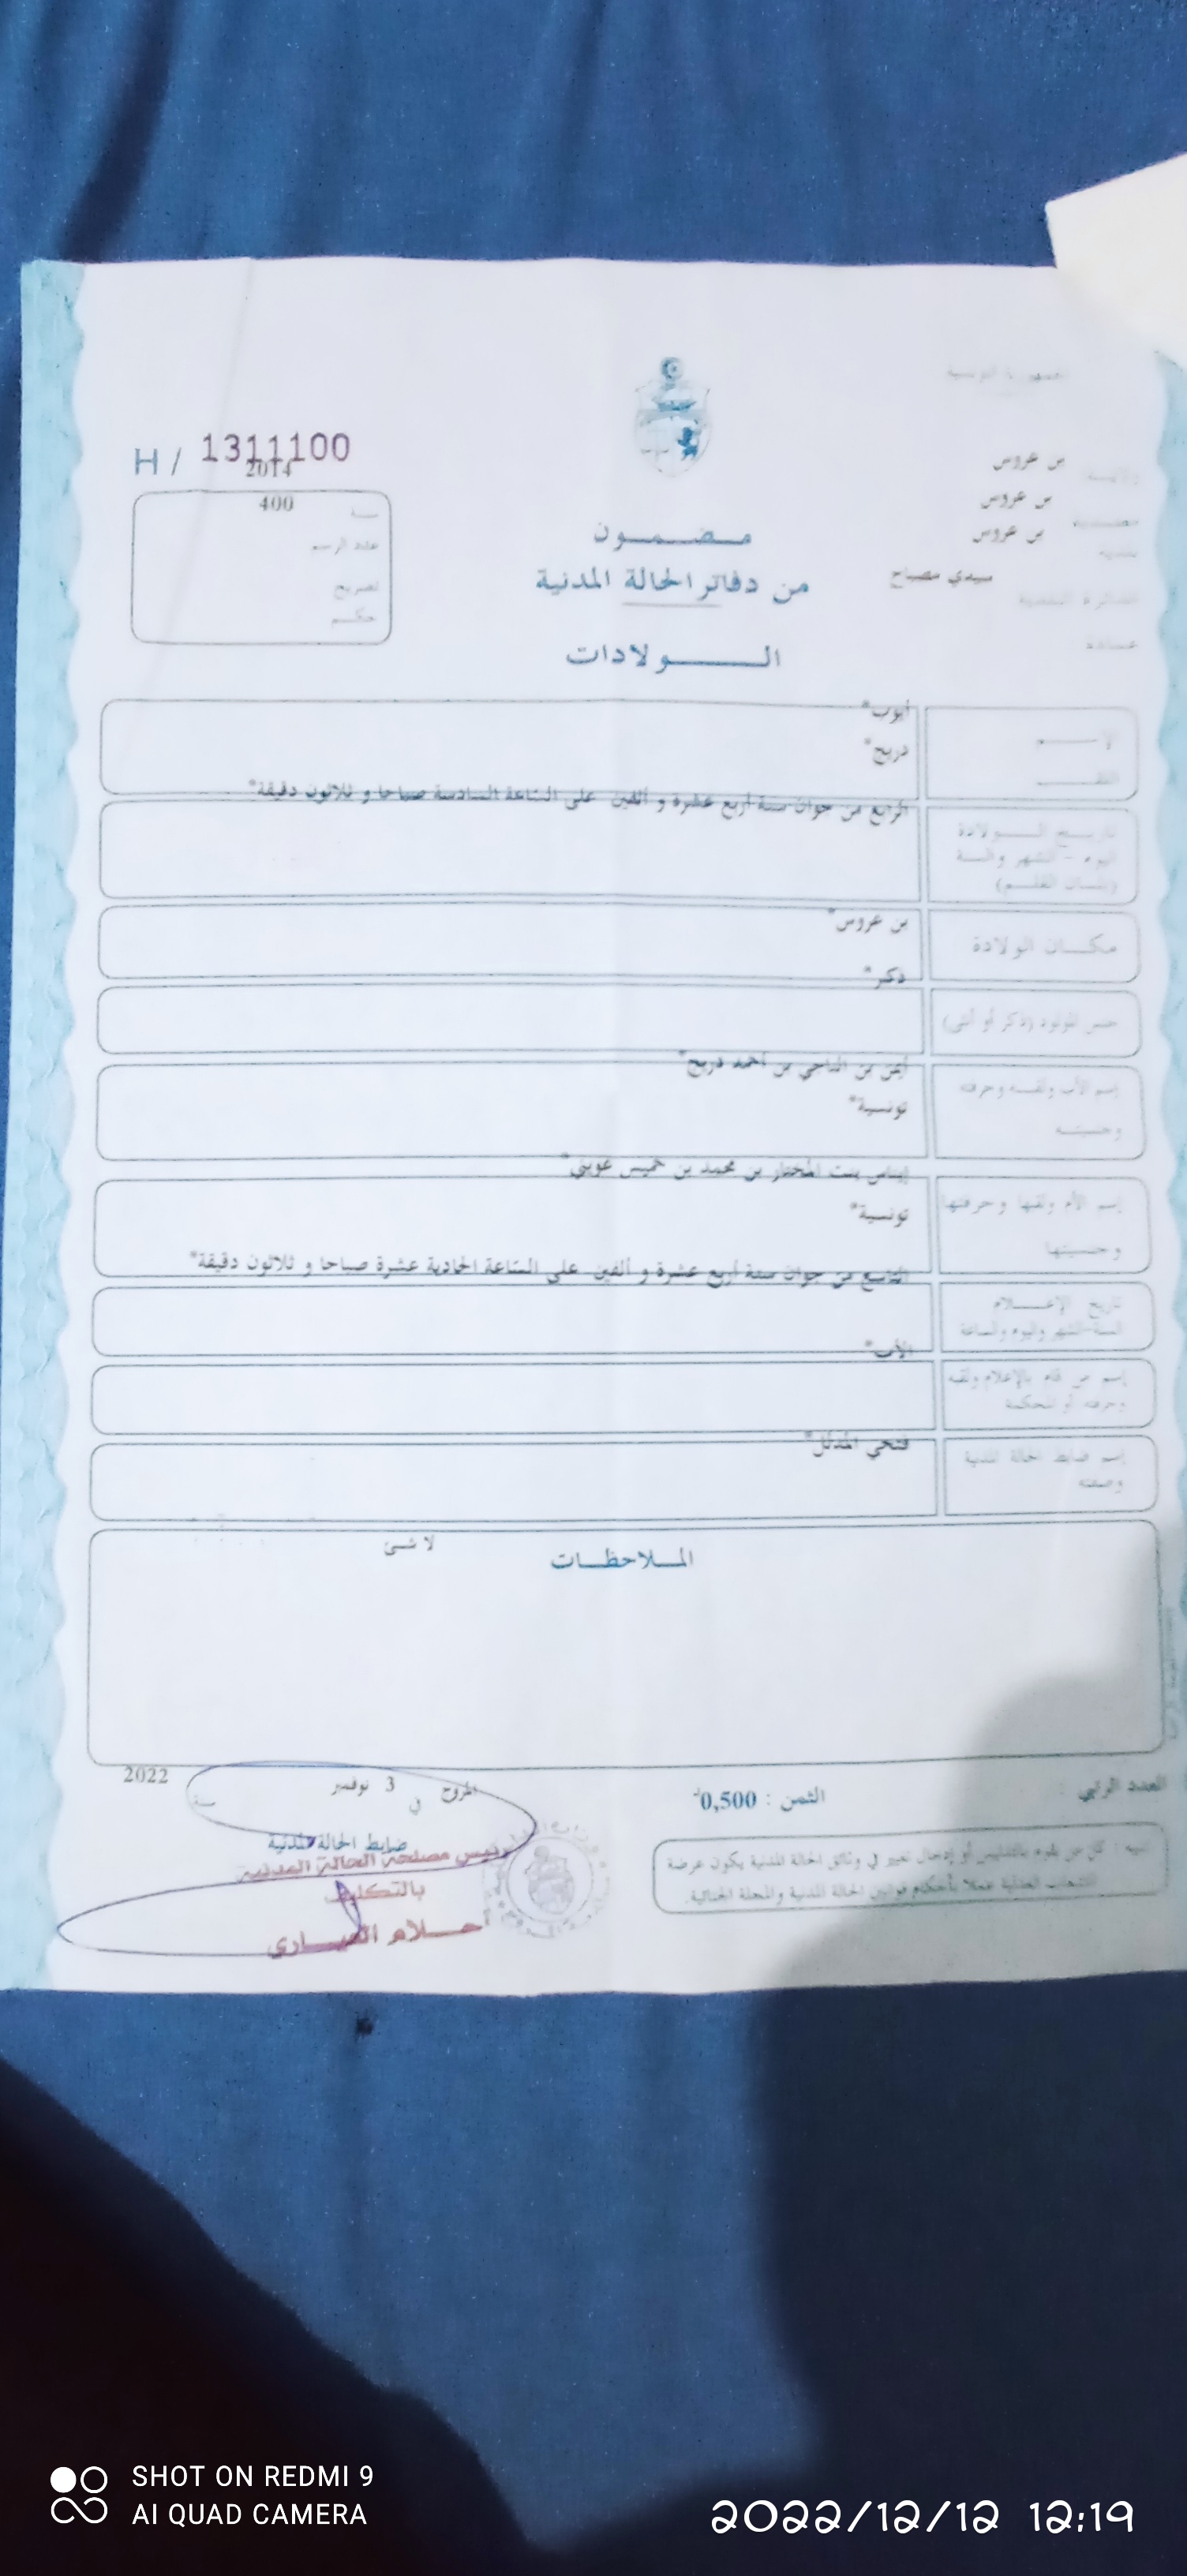 الجمهورية التونسية
H / 1311100
2014
سنة 400
عدد الرسم
تصريح
حكم
مضمون
من دفاتر الحالة المدنية
الولادات
ولاية بن عروس
معتمدية بن عروس
بلدية بن عروس
الدائرة البلدية سيدي مصباح
عمادة
الإسم
أيوب*
اللقب
دريج*
تاريخ الولادة
اليوم - الشهر والسنة
(بلسان القلم)
الرابع من جوان سنة أربع عشرة و ألفين على الساعة السادسة صباحا و ثلاثون دقيقة*
مكان الولادة
بن عروس*
جنس المولود (ذكر أو أنثى)
ذكر*
إسم الأب ولقبه وحرفته
وجنسيته
أيمن بن الناجي بن أحمد دريج*
تونسية*
إسم الأم ولقبها وحرفتها
وجنسيتها
إيناس بنت المختار بن محمد بن خميس عويني*
تونسية*
تاريخ الإعلام
السنة-الشهر واليوم والساعة
التاسع من جوان سنة أربع عشرة و ألفين على الساعة الحادية عشرة صباحا و ثلاثون دقيقة*
إسم من قام بالإعلام ولقبه
وحرفته أو المحكمة
الأب*
إسم ضابط الحالة المدنية
وصفته
فتحي المدلل*
الملاحظات
لا شئ
العدد الرتبي
الثمن : 0,500د
المروج في 3 نوفمبر سنة 2022
ضابط الحالة المدنية
رئيس مصلحة الحالة المدنية
بالتكليف
تنبيه : كل من يقوم بالتدليس أو إدخال تغيير في وثائق الحالة المدنية يكون عرضة
للتتبعات العدلية عملا بأحكام قوانين الحالة المدنية والمجلة الجنائية.
SHOT ON REDMI 9
AI QUAD CAMERA
2022/12/12 12:19